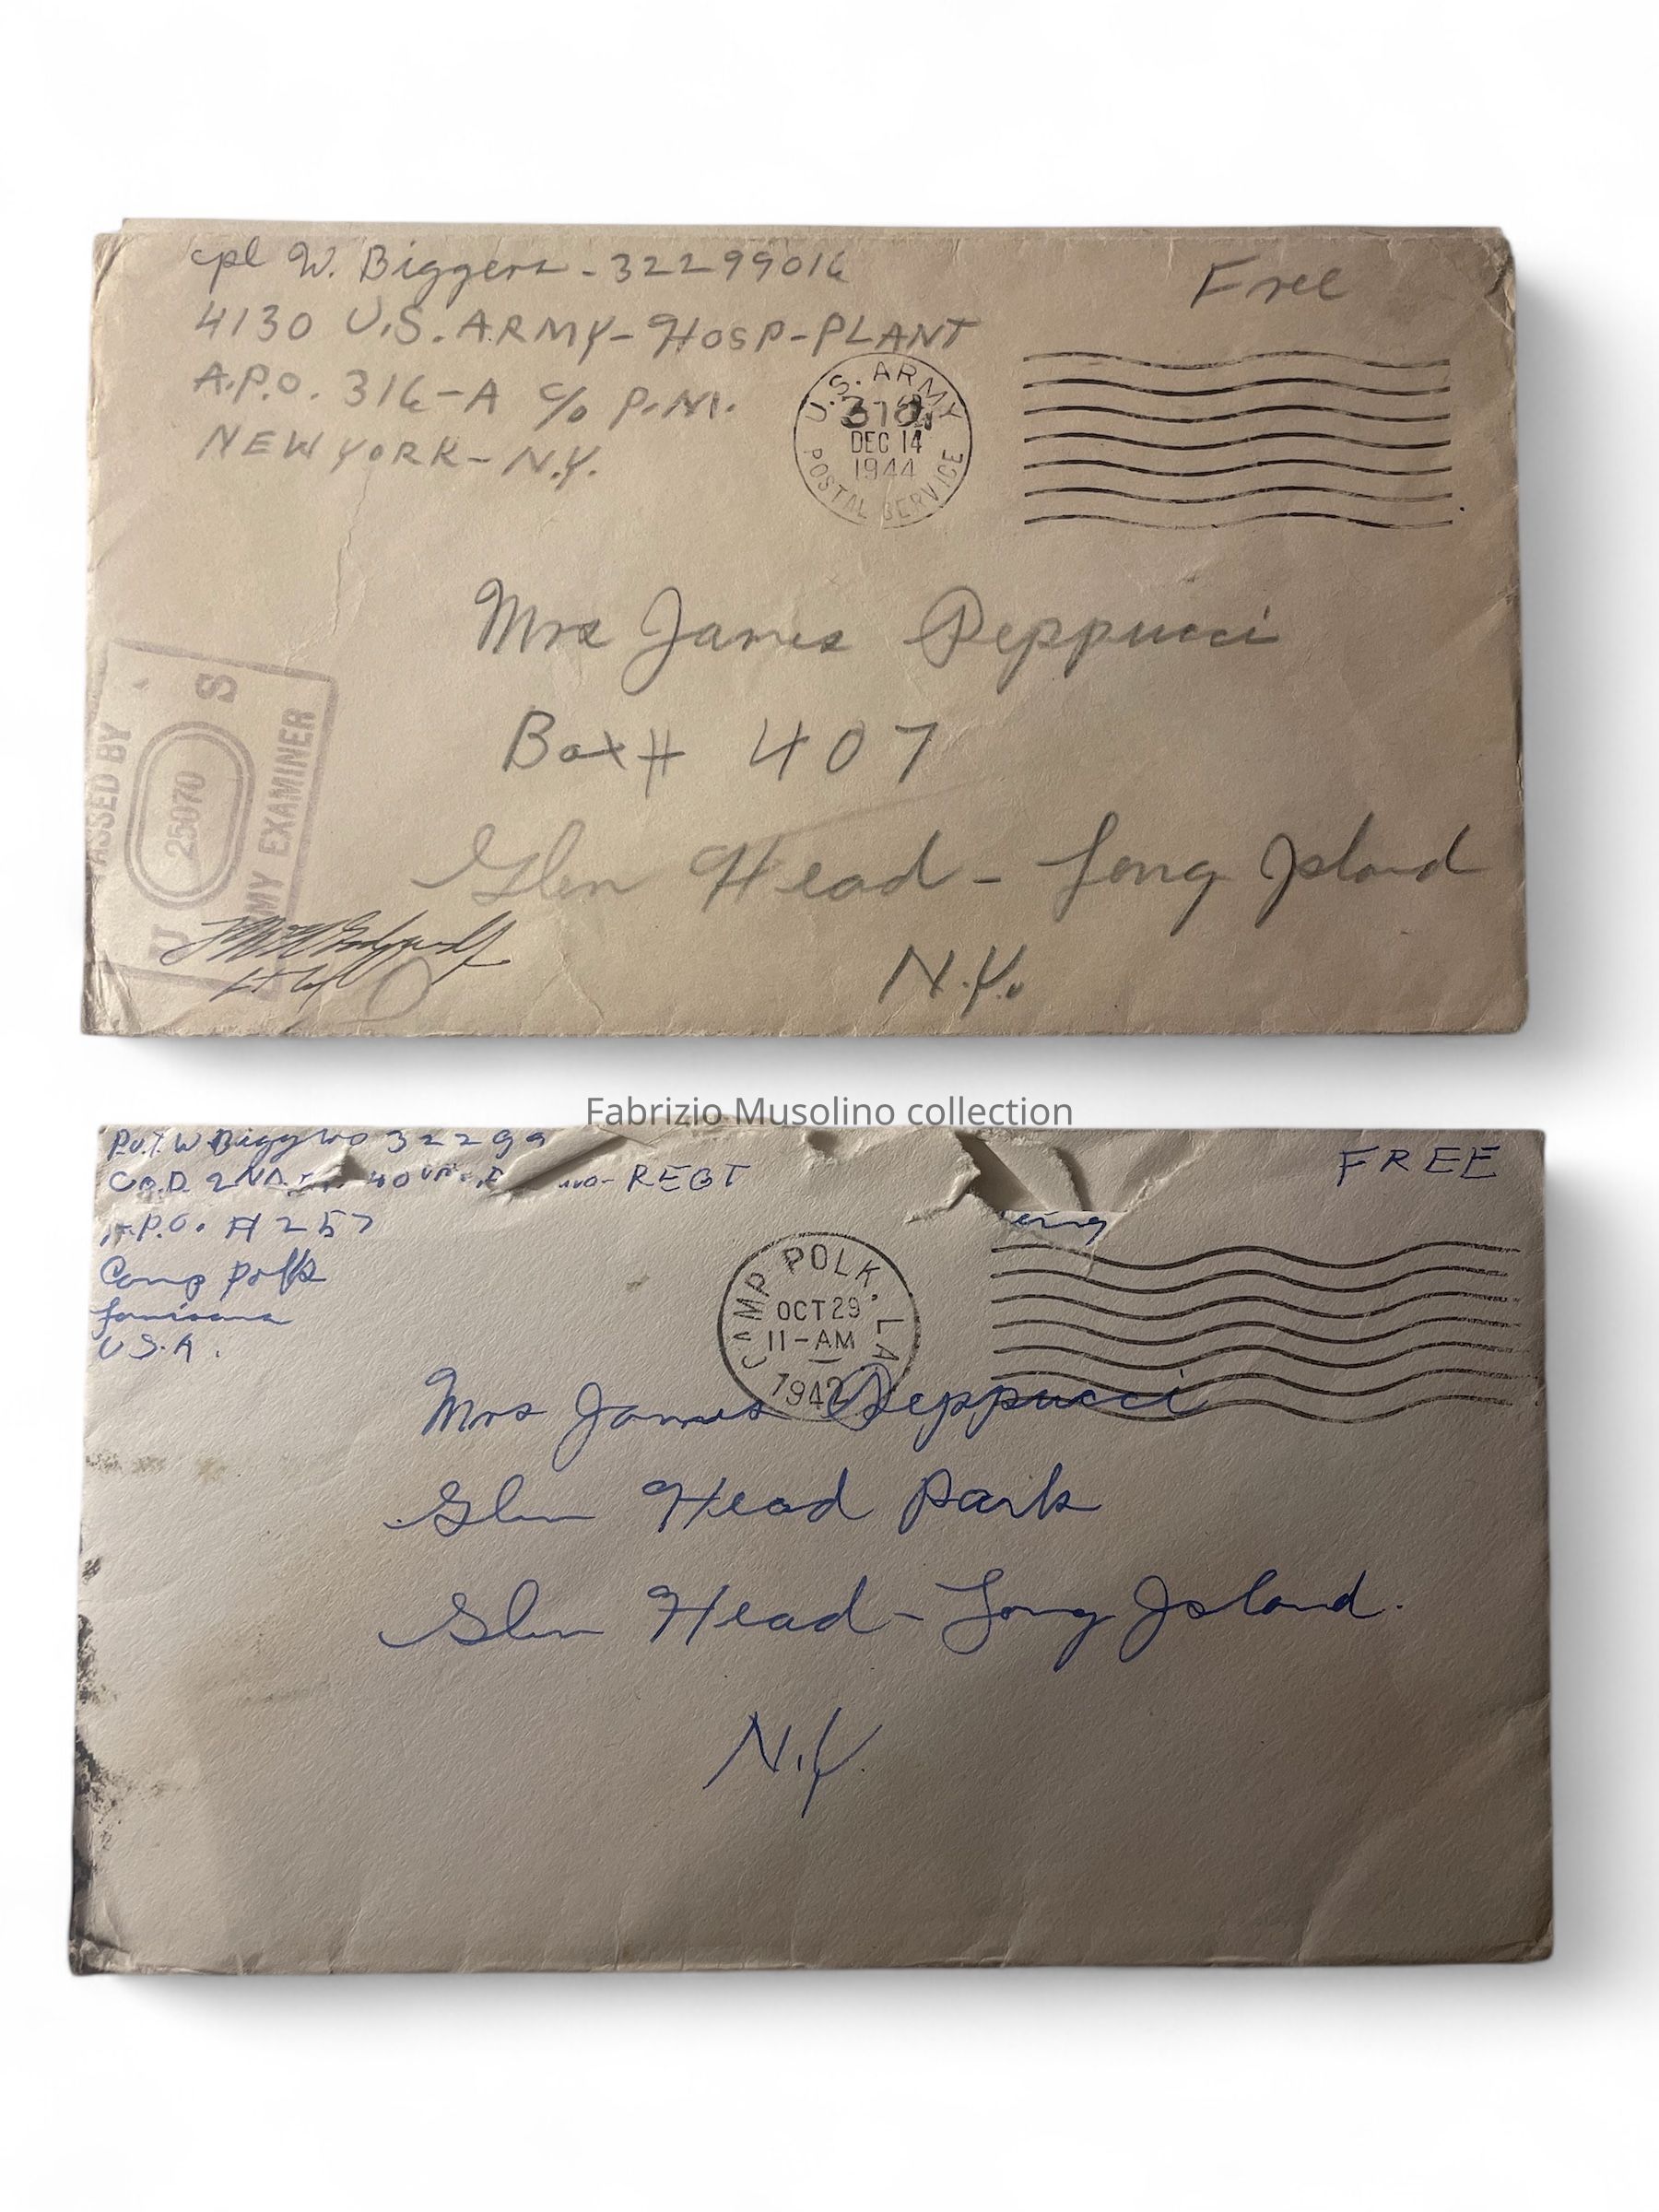 cpl W. Biggers - 32299016
4130 U.S. ARMY - HOSP - PLANT
A.P.O. 316-A c/o P.M.
NEW YORK - N.Y.
Free
U.S. ARMY
DEC 14
1944
POSTAL SERVICE
Mrs James Peppucci
Box # 407
Glen Head - Long Island
N.Y.
PASSED BY
U S
25070
ARMY EXAMINER
Lt Col
Fabrizio Musolino collection
Pvt. W Biggers 32299
Co. D. 2ND REGT
A.P.O. # 257
Camp Polk
Louisiana
U.S.A.
FREE
CAMP POLK, LA
OCT 29
11-AM
1942
Mrs James Peppucci
Glen Head Park
Glen Head - Long Island.
N.Y.